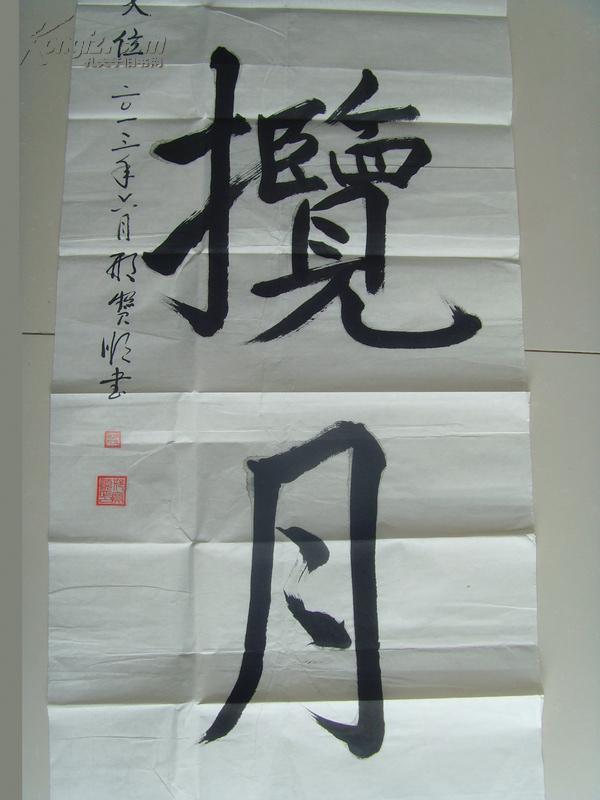 攬月
位
二〇一三年六月邢贤顺书
Kongfz.com
孔夫子旧书网